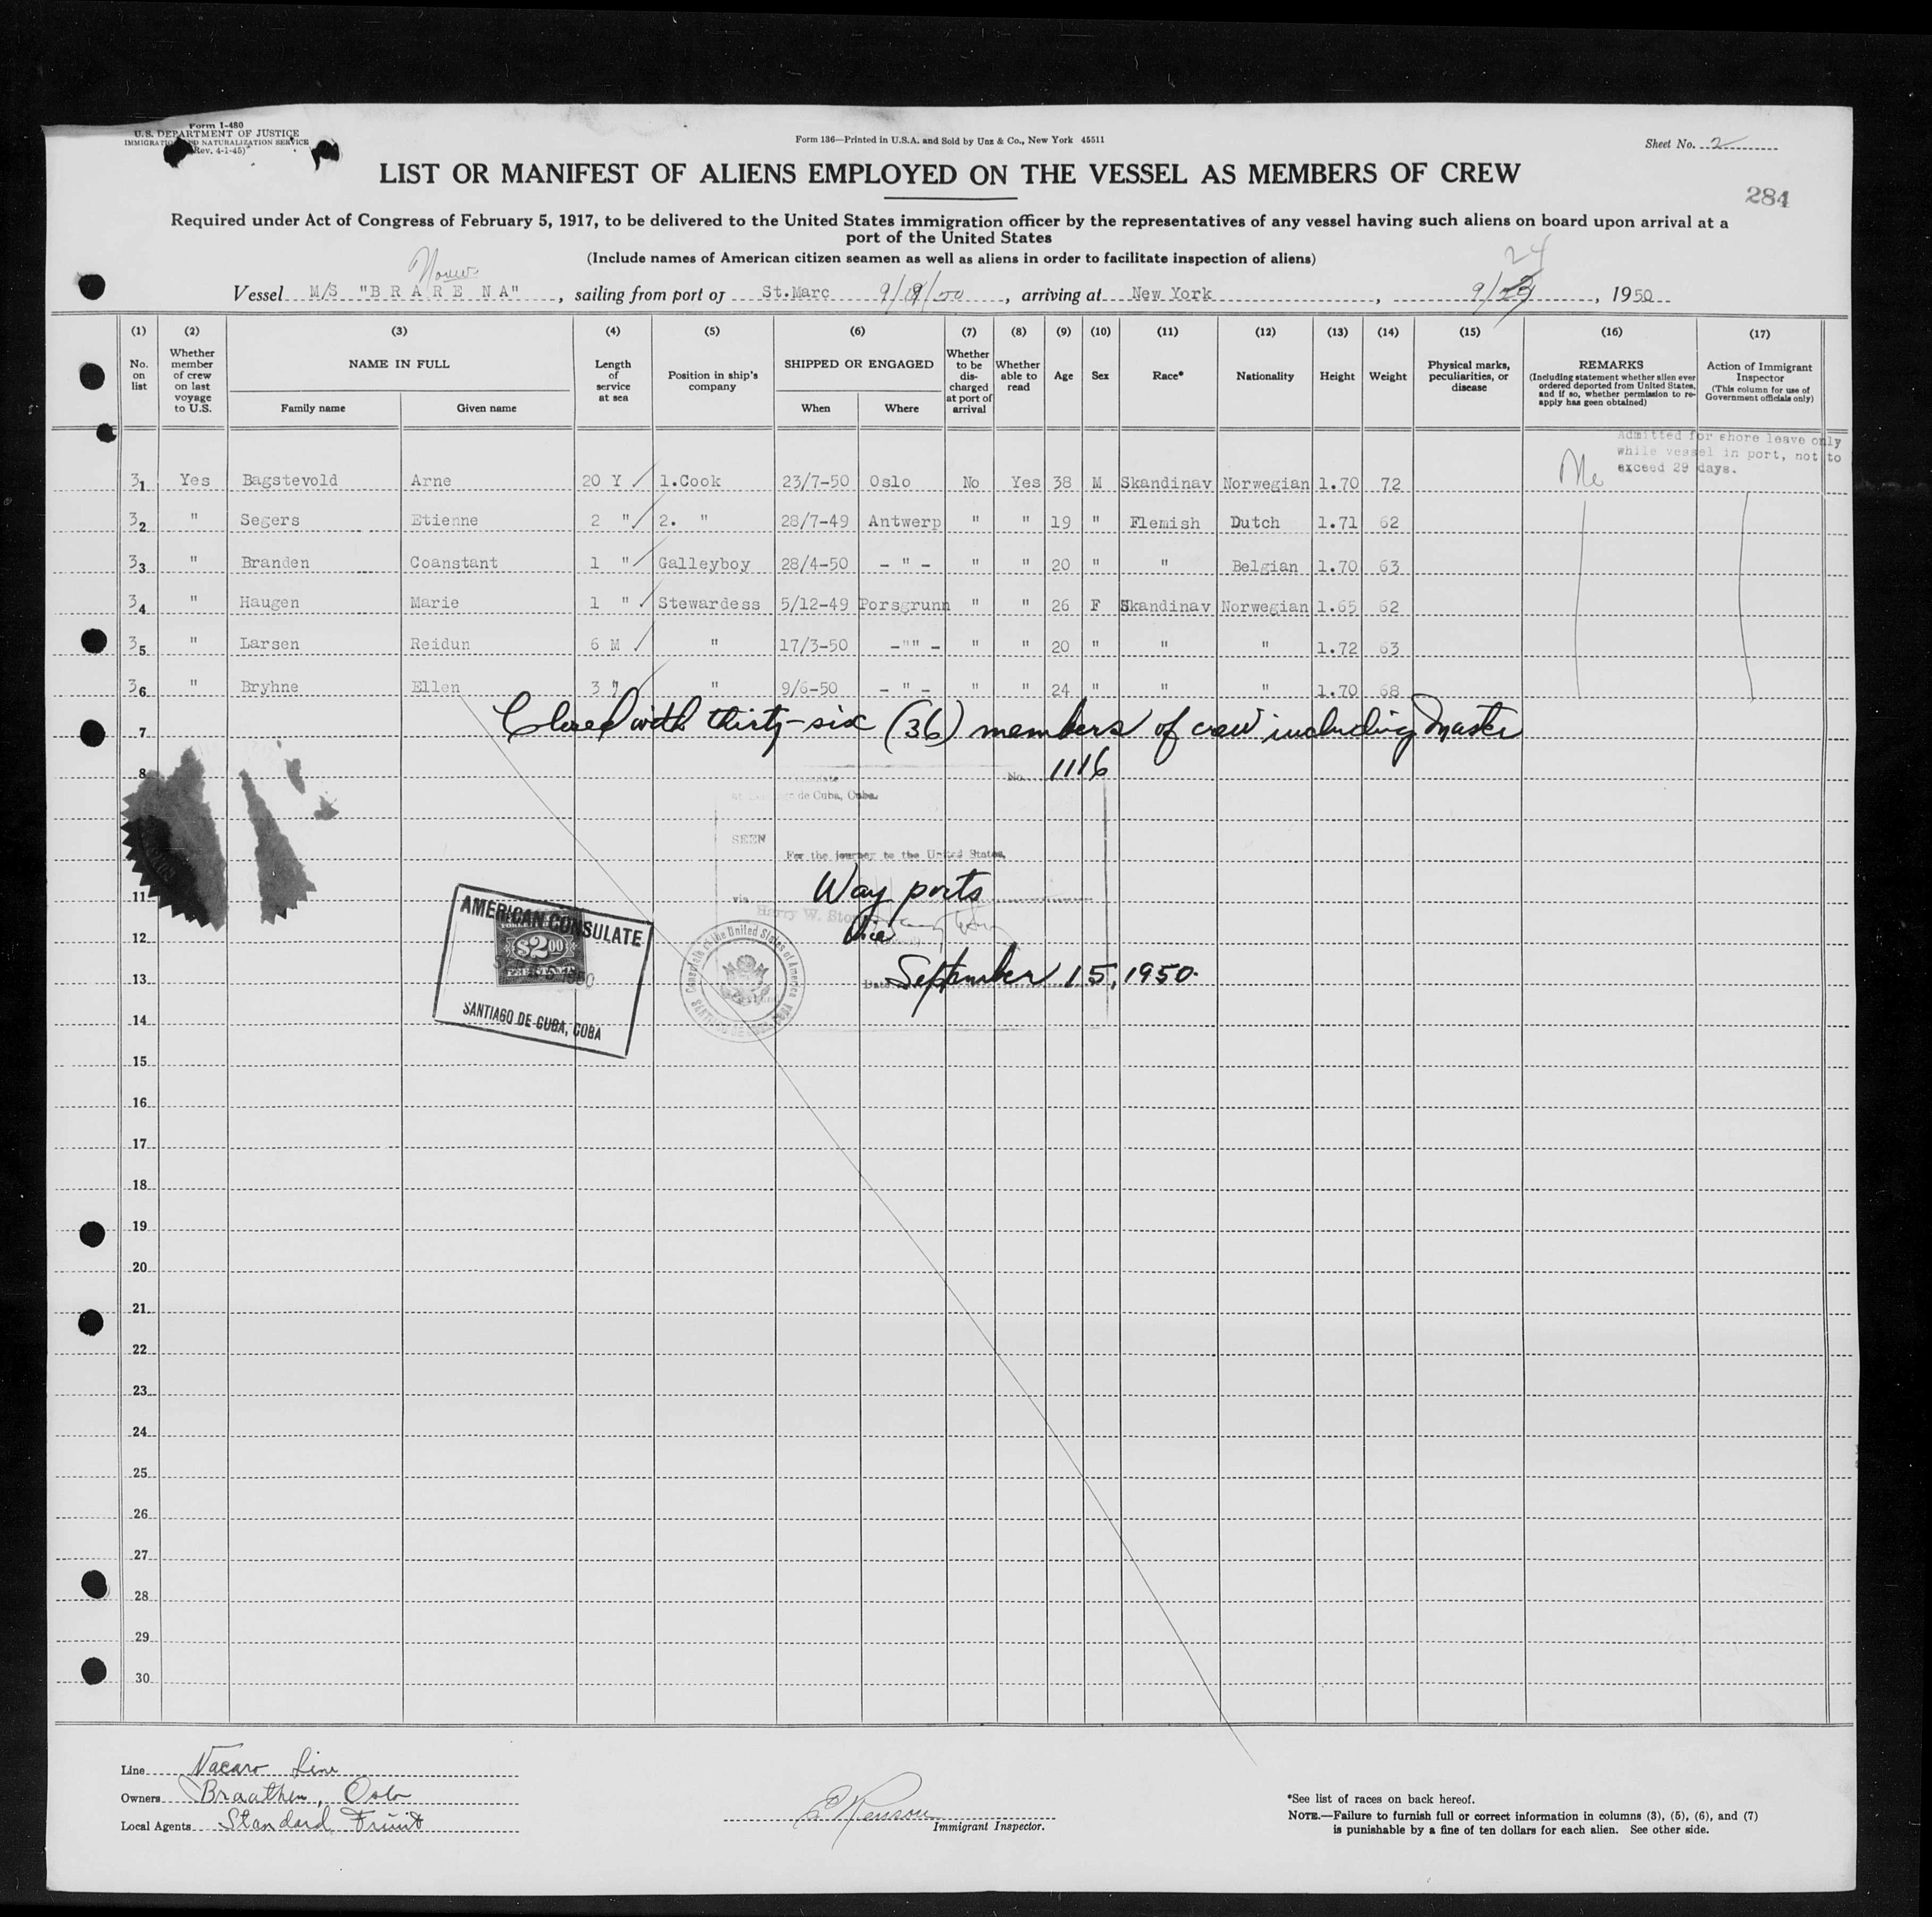 Form I-480
U.S. DEPARTMENT OF JUSTICE
IMMIGRATION AND NATURALIZATION SERVICE
(Rev. 4-1-45)
Form 136—Printed in U.S.A. and Sold by Unz & Co., New York 45511
Sheet No. 2
LIST OR MANIFEST OF ALIENS EMPLOYED ON THE VESSEL AS MEMBERS OF CREW
284
Required under Act of Congress of February 5, 1917, to be delivered to the United States immigration officer by the representatives of any vessel having such aliens on board upon arrival at a
port of the United States
(Include names of American citizen seamen as well as aliens in order to facilitate inspection of aliens)
24
Vessel M/S "BRARENA", sailing from port of St.Marc 9/19/50, arriving at New York, 9/23, 1950
(1) (2) (3) (4) (5) (6) (7) (8) (9) (10) (11) (12) (13) (14) (15) (16) (17)
No. on list
Whether member of crew on last voyage to U.S.
NAME IN FULL
Family name
Given name
Length of service at sea
Position in ship's company
SHIPPED OR ENGAGED
When
Where
Whether to be discharged at port of arrival
Whether able to read
Age
Sex
Race*
Nationality
Height
Weight
Physical marks, peculiarities, or disease
REMARKS
(Including statement whether alien ever ordered deported from United States, and if so, whether permission to re-apply has geen obtained)
Action of Immigrant Inspector
(This column for use of Government officials only)
Admitted for shore leave only
while vessel in port, not to
exceed 29 days.
31 Yes Bagstevold Arne 20 Y 1.Cook 23/7-50 Oslo No Yes 38 M Skandinav Norwegian 1.70 72
32 " Segers Etienne 2 " 2. " 28/7-49 Antwerp " " 19 " Flemish Dutch 1.71 62
33 " Branden Coanstant 1 " Galleyboy 28/4-50 - " - " " 20 " " Belgian 1.70 63
34 " Haugen Marie 1 " Stewardess 5/12-49 Porsgrunn " " 26 F Skandinav Norwegian 1.65 62
35 " Larsen Reidun 6 M " 17/3-50 -"" - " " 20 " " " 1.72 63
36 " Bryhne Ellen 3 " " 9/6-50 - " - " " 24 " " " 1.70 68
Closed with thirty-six (36) members of crew including Master
7
8
No. 1116
de Cuba, Cuba.
SEEN
For the journey to the United States,
11
via Way ports
Harry W. Story
AMERICAN CONSULATE
$2.00
FEE STAMP
SANTIAGO DE CUBA, CUBA
Consulate of the United States of America
12
Vice
13
Date September 15, 1950.
14
15
16
17
18
19
20
21
22
23
24
25
26
27
28
29
30
Line Vacaro Line
Owners Braathen, Oslo
Local Agents Standard Fruit
Immigrant Inspector.
*See list of races on back hereof.
NOTE.—Failure to furnish full or correct information in columns (3), (5), (6), and (7)
is punishable by a fine of ten dollars for each alien. See other side.